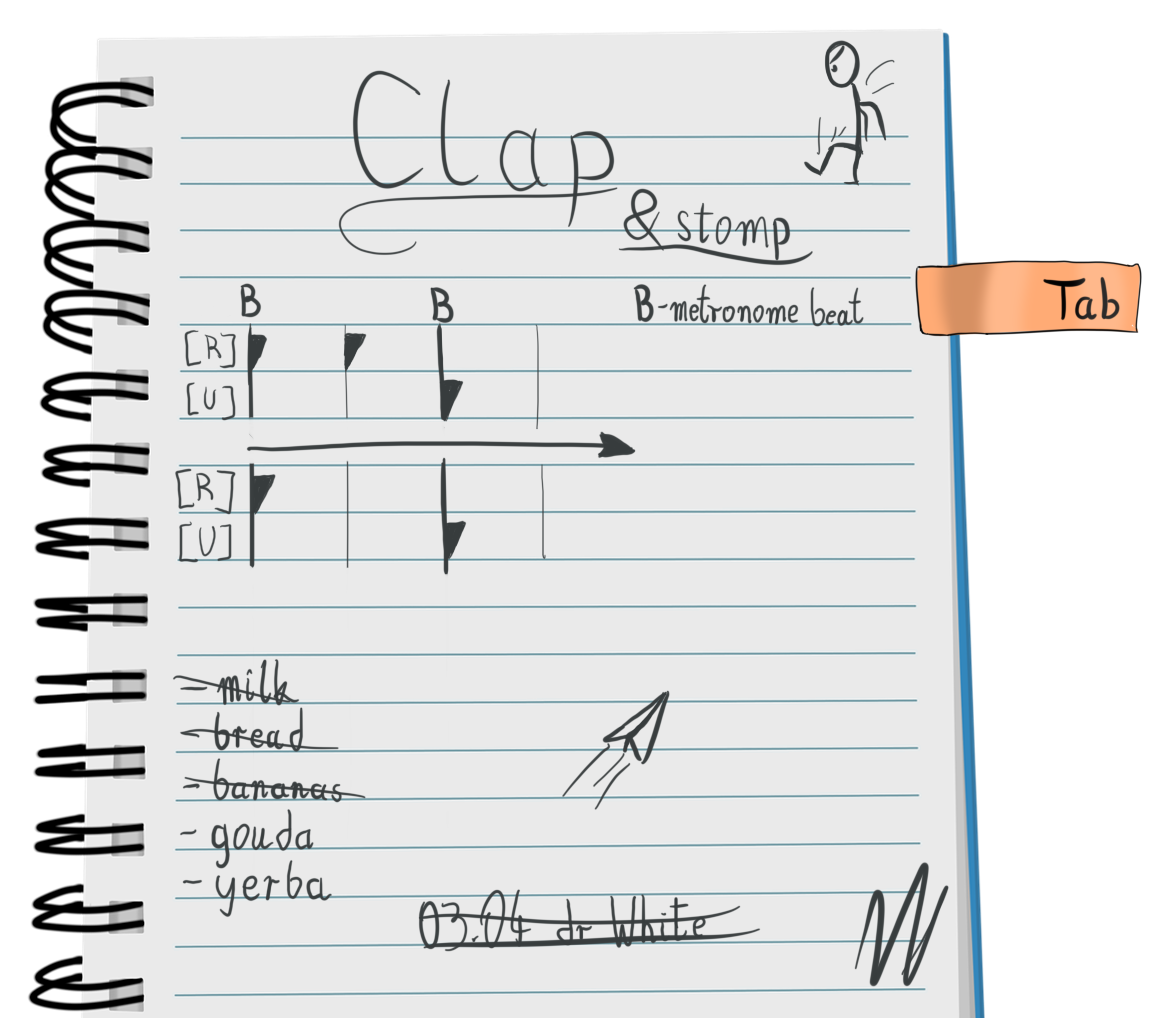 Clap
& stomp
Tab
B B B-metronome beat
[R]
[U]
[R]
[U]
- milk
- bread
- bananas
- gouda
- yerba
03.04 dr White